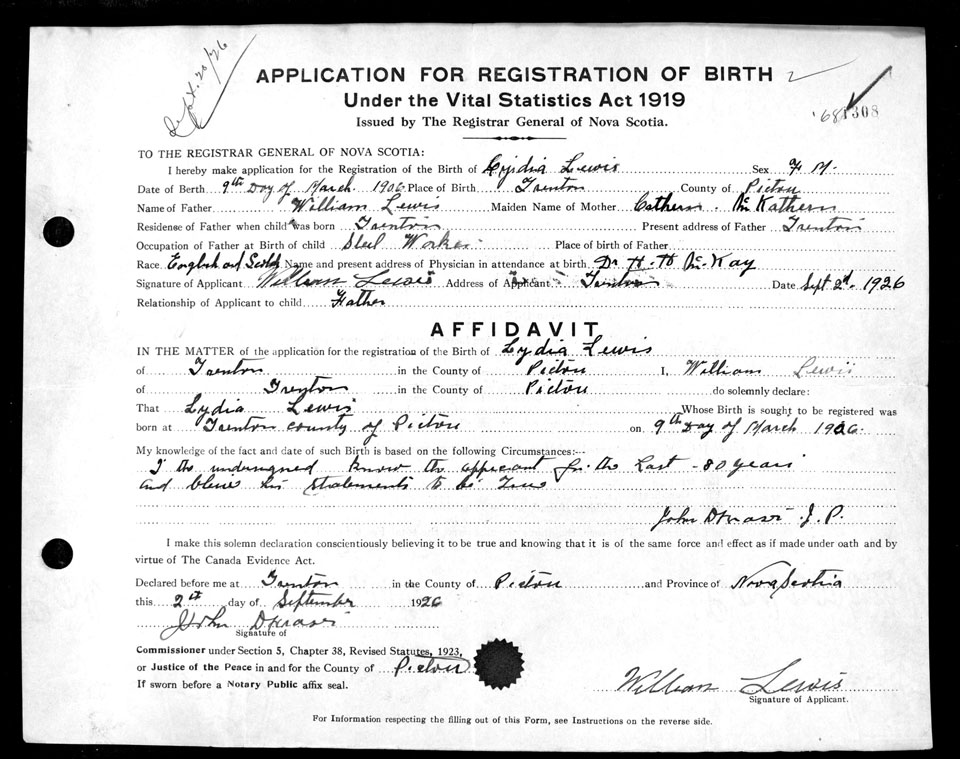 Sept. 20/26
APPLICATION FOR REGISTRATION OF BIRTH
Under the Vital Statistics Act 1919
Issued by The Registrar General of Nova Scotia.
'68 1308
TO THE REGISTRAR GENERAL OF NOVA SCOTIA:
I hereby make application for the Registration of the Birth of Lydia Lewis Sex F M.
Date of Berth 9th Day of March 1906 Place of Birth Trenton County of Pictou
Name of Father William Lewis Maiden Name of Mother Cathern Mc Kathern
Residence of Father when child was born Trenton Present address of Father Trenton
Occupation of Father at Birth of child Steel Worker Place of birth of Father
Race English and Scotch Name and present address of Physician in attendance at birth Dr. H. H Mc. Kay
Signature of Applicant William Lewis Address of Applicant Trenton Date Sept 2d. 1926
Relationship of Applicant to child Father
AFFIDAVIT
IN THE MATTER of the application for the registration of the Birth of Lydia Lewis
of Trenton in the County of Pictou I, William Lewis
of Trenton in the County of Pictou do solemnly declare:
That Lydia Lewis Whose Birth is sought to be registered was
born at Trenton county of Pictou on 9th Day of March 1906.
My knowledge of the fact and date of such Birth is based on the following Circumstances:—
I the undersigned know the applicant for the Last - 30 years
and his statements to be True
John J. P.
I make this solemn declaration conscientiously believing it to be true and knowing that it is of the same force and effect as if made under oath and by
virtue of The Canada Evidence Act.
Declared before me at Trenton in the County of Pictou and Province of Nova Scotia
this 2nd day of September 1926
John
Signature of
Commissioner under Section 5, Chapter 38, Revised Statutes, 1923,
or Justice of the Peace in and for the County of Pictou
If sworn before a Notary Public affix seal.
William Lewis
Signature of Applicant.
For Information respecting the filling out of this Form, see Instructions on the reverse side.